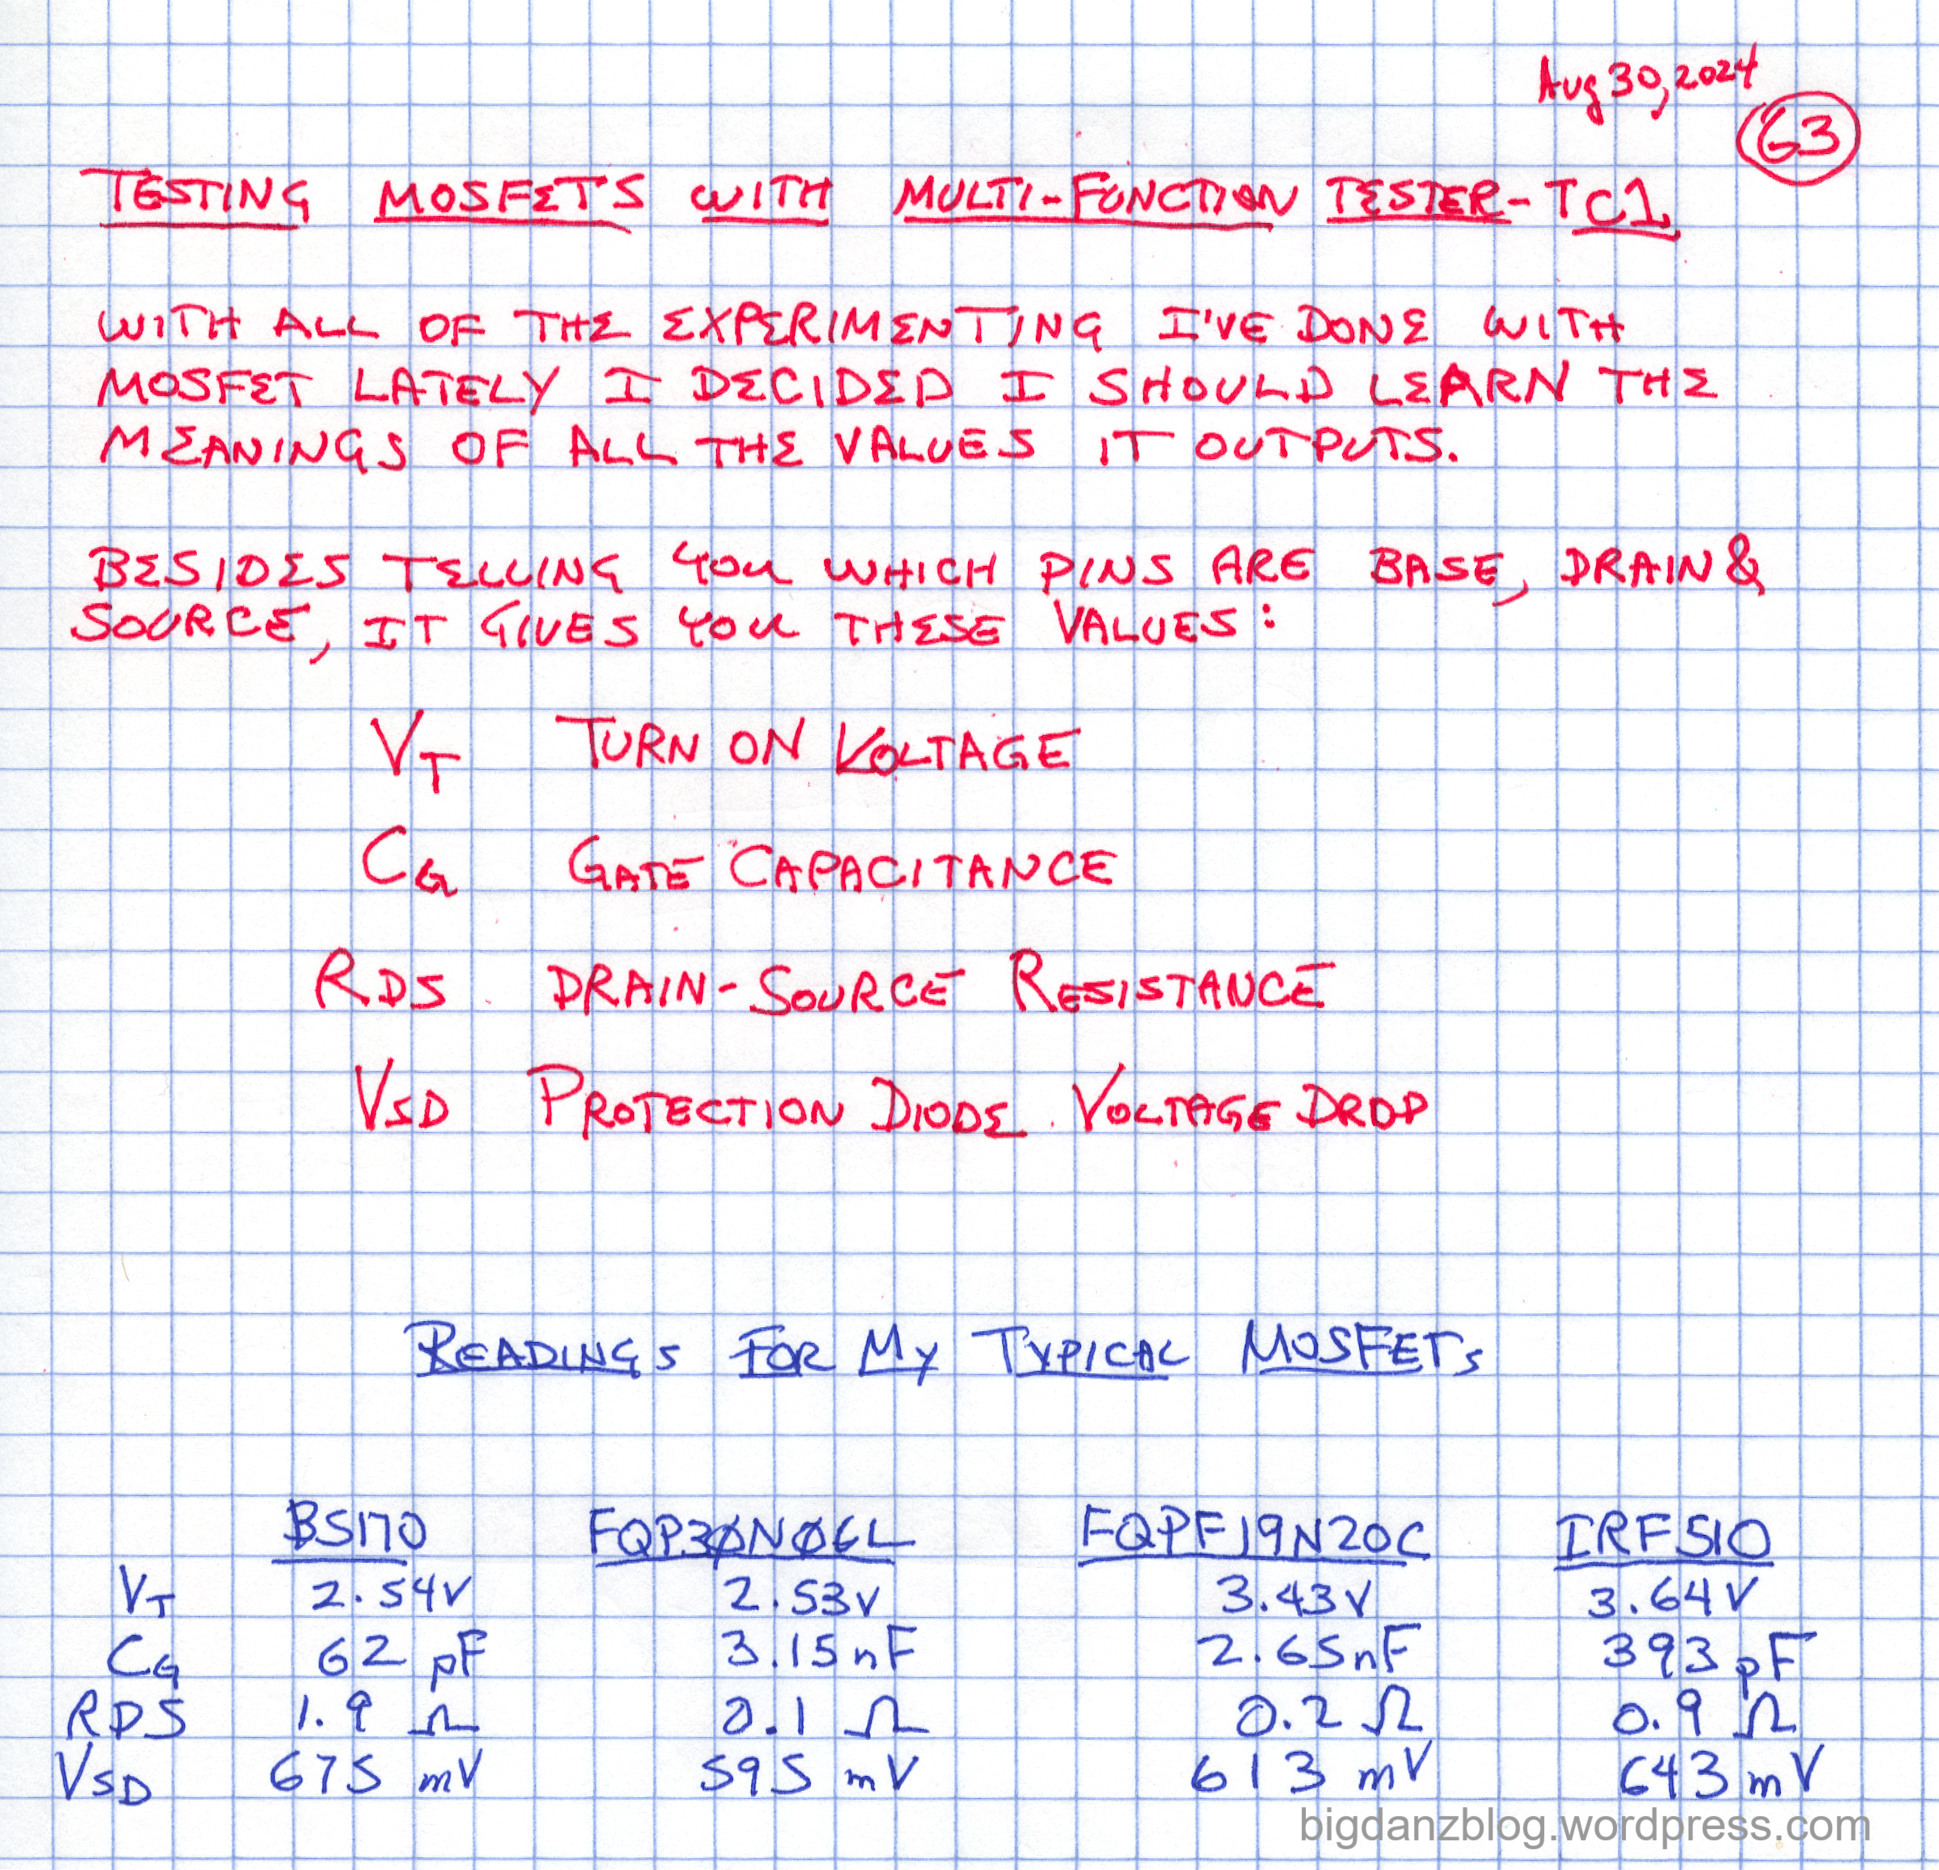 Aug 30, 2024
63
TESTING MOSFETS WITH MULTI-FUNCTION TESTER-TC1
WITH ALL OF THE EXPERIMENTING I'VE DONE WITH
MOSFET LATELY I DECIDED I SHOULD LEARN THE
MEANINGS OF ALL THE VALUES IT OUTPUTS.
BESIDES TELLING YOU WHICH PINS ARE BASE, DRAIN &
SOURCE, IT GIVES YOU THESE VALUES:
VT TURN ON VOLTAGE
CG GATE CAPACITANCE
RDS DRAIN-SOURCE RESISTANCE
VSD PROTECTION DIODE VOLTAGE DROP
READINGS FOR MY TYPICAL MOSFETs
BS170 FQP30N06L FQPF19N20C IRF510
VT 2.54V 2.53V 3.43V 3.64V
CG 62 pF 3.15nF 2.65nF 393 pF
RDS 1.9 Ω 0.1 Ω 0.2 Ω 0.9 Ω
VSD 675 mV 595 mV 613 mV 643 mV
bigdanzblog.wordpress.com